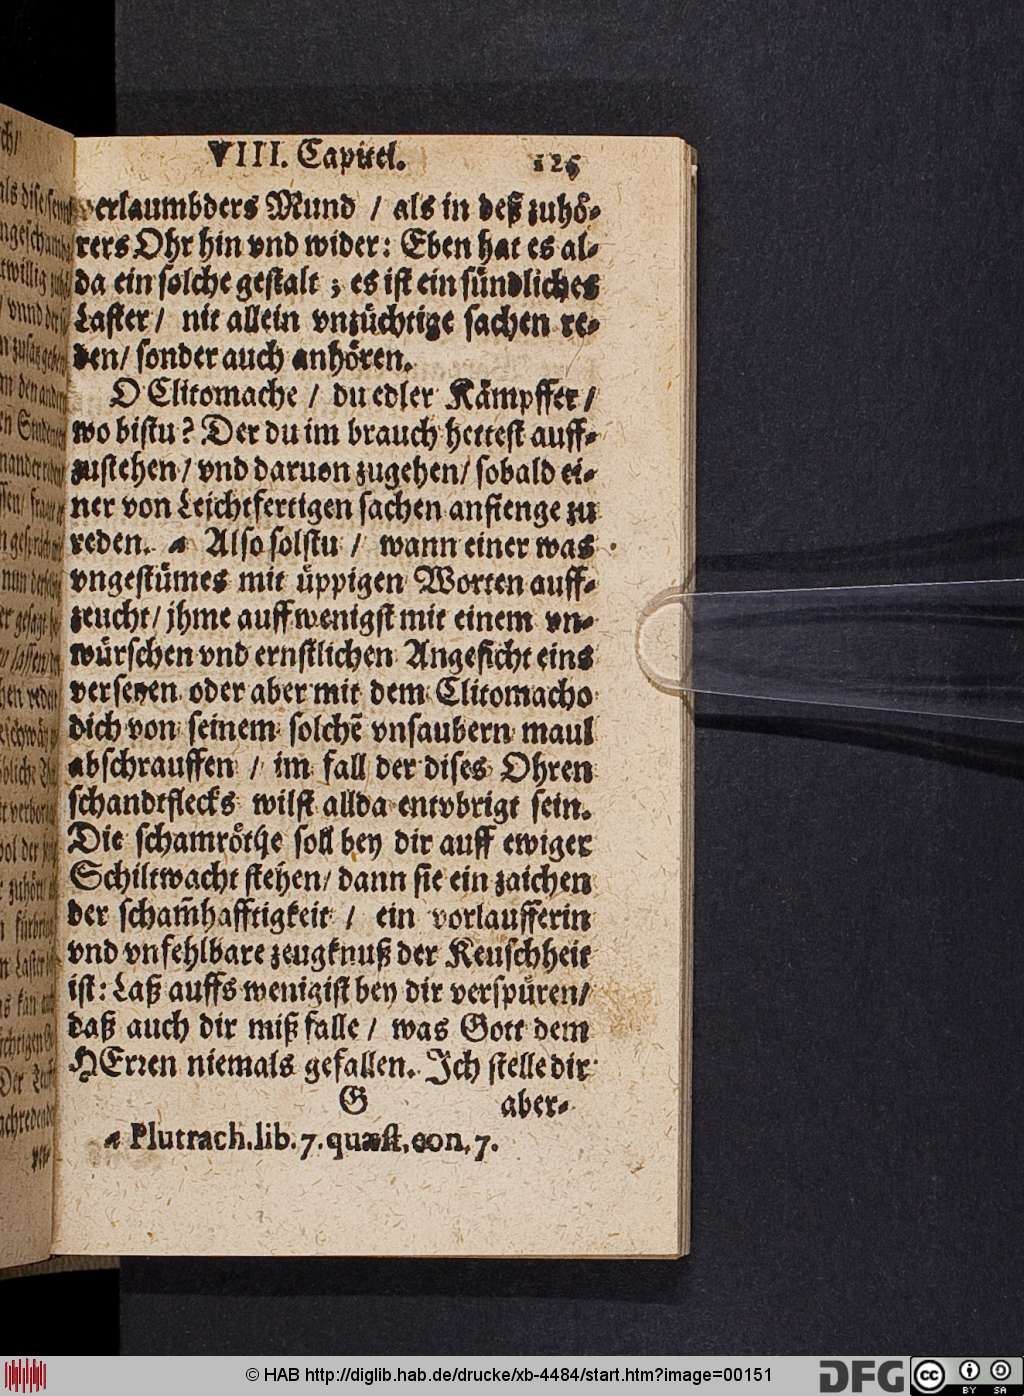 VIII. Capitel. 125
verlaumbders Mund / als in deß zuhö-
rers Ohr hin vnd wider: Eben hat es al-
da ein solche gestalt ; es ist ein sündliches
Laster / nit allein vnzüchtige sachen re-
den/ sonder auch anhören.
O Clitomache / du edler Kämpffer /
wo bistu? Der du im brauch hettest auff-
zustehen / vnd daruon zugehen / sobald ei-
ner von Leichtfertigen sachen anfienge zu
reden. a Also solstu / wann einer was
vngestümes mit üppigen Worten auff-
zeucht / jhme auff wenigst mit einem vn-
würschen vnd ernstlichen Angesicht eins
versetzen oder aber mit dem Clitomacho
dich von seinem solchẽ vnsaubern maul
abschrauffen / im fall der dises Ohren
schandtflecks wilst allda entvbrigt sein.
Die schamröthe soll bey dir auff ewiger
Schiltwacht stehen/ dann sie ein zaichen
der scham̃hafftigkeit / ein vorlaufferin
vnd vnfehlbare zeugknuß der Keuschheit
ist: Laß auffs wenigist bey dir verspüren/
daß auch dir mißfalle / was Gott dem
HErren niemals gefallen. Ich stelle dir
G aber-
a Plutrach. lib. 7. quæst. con. 7.
© HAB http://diglib.hab.de/drucke/xb-4484/start.htm?image=00151
DFG
cc BY SA